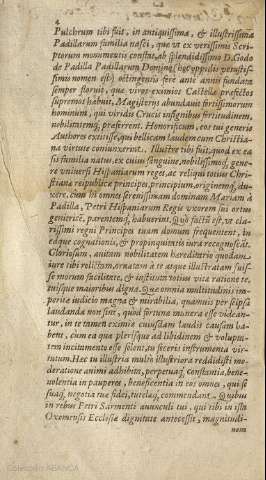 Pulchrum tibi fuit, in antiquissima, & illustrissima
Padillarum familia nasci, quæ vt ex verissimis Scri-
ptorum monumentis constat, ab splendidissimo D. Goda
de Padilla Padillarum Domino (hoc oppidi vetustis-
simi nomen est) octingentis fere ante annis fundata
semper floruit, quæ viros eximios Castellæ præfectos
supremos habuit, Magistros abundauit fortissimorum
hominum, qui viridis Crucis insignibus fortitudinem,
nobilitatemq́; præferent. Honorificum, eos tui generis
Authores extitisse, qui bellicam laudem cum Christia
na virtute coniunxerint. Illustre tibi fuit, quod ex ea
sis familia natus, ex cuius sanguine, nobilissimoq́; gene-
re vniuersi Hispaniarum reges, ac reliqui totius Chri-
stianæ reipublicæ principes, principium, originemq́; du-
xere. cum in omnes serenissimam dominam Mariam à
Padilla, Petri Hispaniarum Regis vxorem sui ortus
genitricē, parentemq́; habuerint. Quo factū est, vt cla-
rissimi regni Principes tuam domum frequentent, in
eaque cognationis, & propinquitatis iura recognoscāt.
Gloriosum, auitam nobilitatem hæreditario quodam
iure tibi relictam, ornatam à te atque illustratam suis-
se morum facilitate, & institutam totius vita ratione te,
tuisque maioribus digna. Quæ omnia multitudinis im-
peritæ iudicio magna & mirabilia, quamuis per seipsa
laudanda non sint, quod fortunæ munera esse videan-
tur, in te tamen eximiæ cuiusdam laudis causam ha-
bent, cum ea quæ plerisque ad libidinem & volupta-
tem incitamento esse solent, tu feceris instrumenta vir-
tutum. Hæc tu illustria multo illustriora reddidisti mo-
deratione animi adhibita, perpetuaq́; constantia, bene-
uolentia in pauperes, beneficentia in eos omnes, qui se
suaq́; negotia tuæ fidei, tutelæq́; commendant. Quibus
in rebus Petri Sarmenti auunculi tui, qui tibi in ista
Oxomensis Ecclesiæ dignitate antecessit, magnitudi-
nem
Colección ABANCA